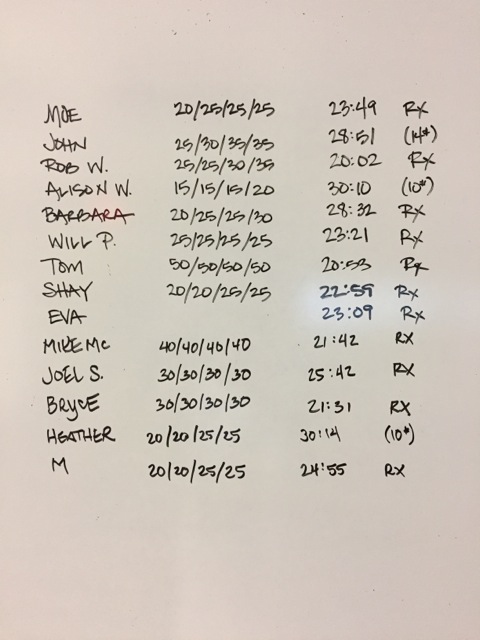 MOE 20/25/25/25 23:49 RX
JOHN 25/30/35/35 28:51 (14#)
ROB W. 25/25/30/35 20:02 RX
ALISON W. 15/15/15/20 30:10 (10#)
BARBARA 20/25/25/30 28:32 RX
WILL P. 25/25/25/25 23:21 RX
TOM 50/50/50/50 20:53 RX
SHAY 20/20/25/25 22:59 RX
EVA 23:09 RX
MIKE MC 40/40/40/40 21:42 RX
JOEL S. 30/30/30/30 25:42 RX
BRYCE 30/30/30/30 21:31 RX
HEATHER 20/20/25/25 30:14 (10#)
M 20/20/25/25 24:55 RX